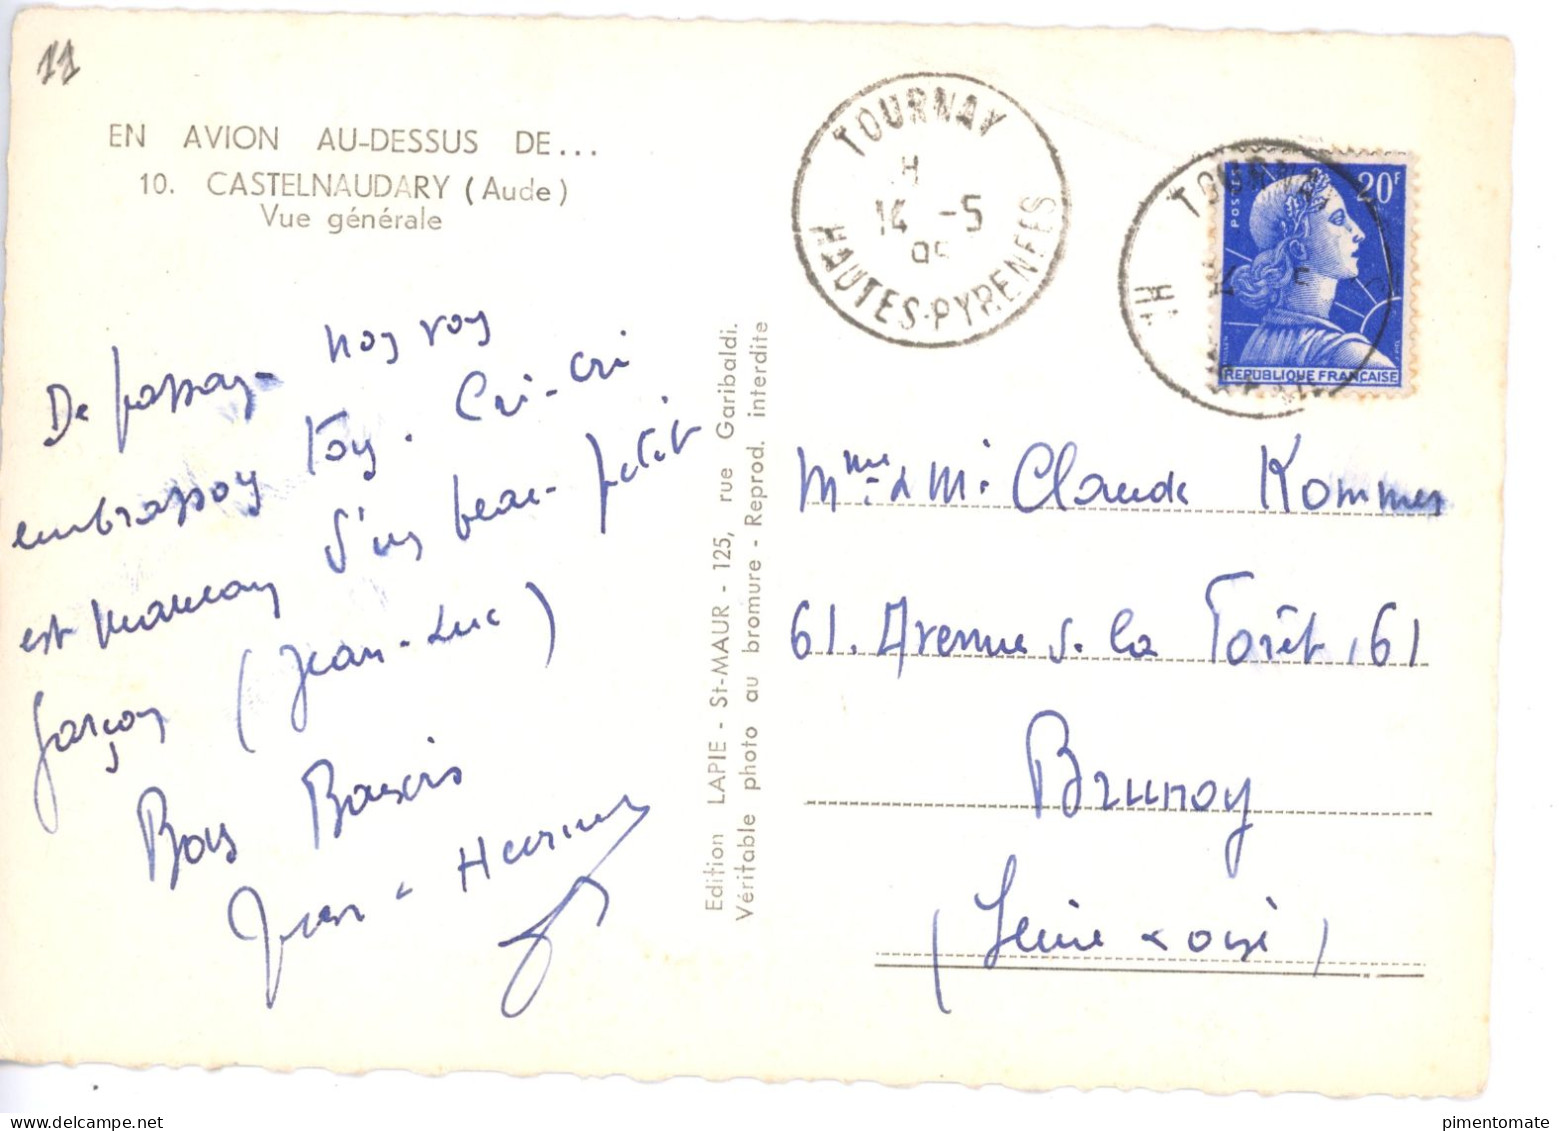 11
EN AVION AU-DESSUS DE...
10. CASTELNAUDARY (Aude)
Vue générale
De passage nous vous
embrassons tous. Cri-cri
est maman d'un beau petit
garçon (Jean-Luc)
Bons Baisers
Jean-
Edition LAPIE - St-MAUR - 125, rue Garibaldi.
Véritable photo au bromure - Reprod. interdite
TOURNAY
H
14 -5
HAUTES-PYRENEES
TOURNAY
POSTES
20F
REPUBLIQUE FRANÇAISE
Mme & M. Claude Kommer
61. Avenue d. la Forêt, 61
Brunoy
(Seine & Oise)
pimentomate